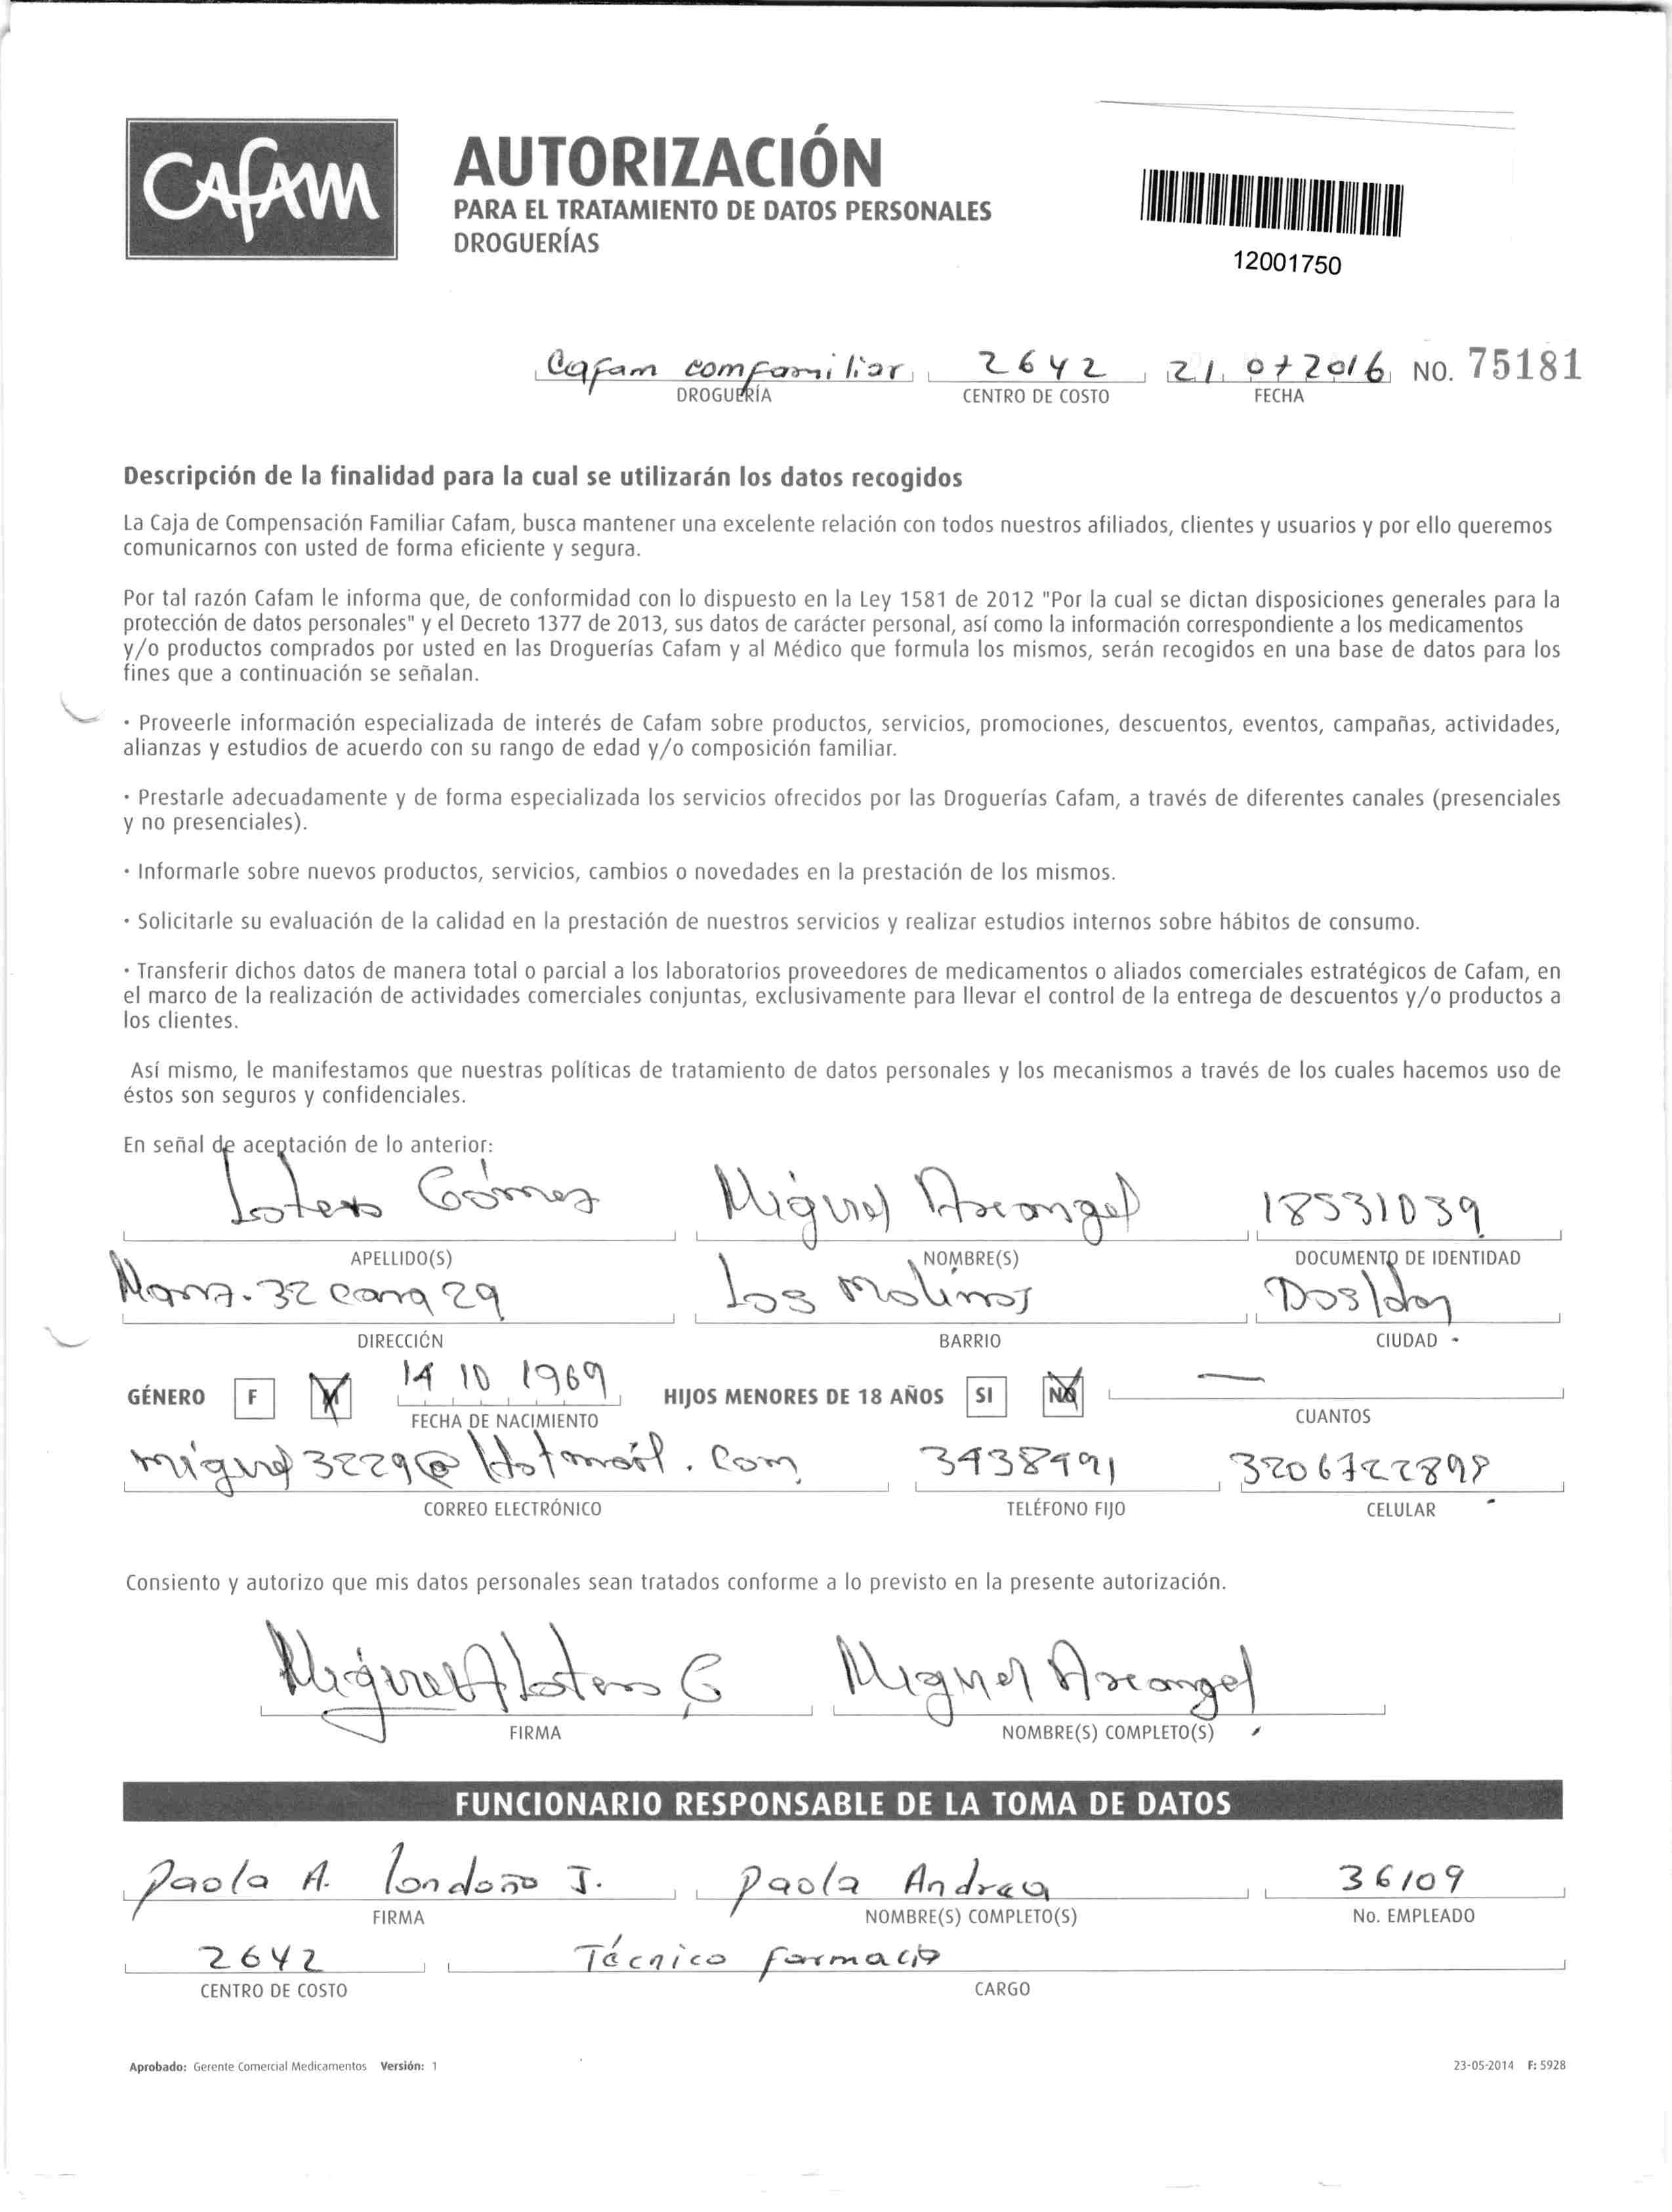 CAFAM
AUTORIZACIÓN
PARA EL TRATAMIENTO DE DATOS PERSONALES
DROGUERÍAS
12001750
Cafam comfamiliar 2642 21 07 2016 NO. 75181
DROGUERÍA CENTRO DE COSTO FECHA
Descripción de la finalidad para la cual se utilizarán los datos recogidos
La Caja de Compensación Familiar Cafam, busca mantener una excelente relación con todos nuestros afiliados, clientes y usuarios y por ello queremos
comunicarnos con usted de forma eficiente y segura.
Por tal razón Cafam le informa que, de conformidad con lo dispuesto en la Ley 1581 de 2012 "Por la cual se dictan disposiciones generales para la
protección de datos personales" y el Decreto 1377 de 2013, sus datos de carácter personal, así como la información correspondiente a los medicamentos
y/o productos comprados por usted en las Droguerías Cafam y al Médico que formula los mismos, serán recogidos en una base de datos para los
fines que a continuación se señalan.
· Proveerle información especializada de interés de Cafam sobre productos, servicios, promociones, descuentos, eventos, campañas, actividades,
alianzas y estudios de acuerdo con su rango de edad y/o composición familiar.
· Prestarle adecuadamente y de forma especializada los servicios ofrecidos por las Droguerías Cafam, a través de diferentes canales (presenciales
y no presenciales).
· Informarle sobre nuevos productos, servicios, cambios o novedades en la prestación de los mismos.
· Solicitarle su evaluación de la calidad en la prestación de nuestros servicios y realizar estudios internos sobre hábitos de consumo.
· Transferir dichos datos de manera total o parcial a los laboratorios proveedores de medicamentos o aliados comerciales estratégicos de Cafam, en
el marco de la realización de actividades comerciales conjuntas, exclusivamente para llevar el control de la entrega de descuentos y/o productos a
los clientes.
Así mismo, le manifestamos que nuestras políticas de tratamiento de datos personales y los mecanismos a través de los cuales hacemos uso de
éstos son seguros y confidenciales.
En señal de aceptación de lo anterior:
Lotero Gómez Miguel Arcangel 18531039
APELLIDO(S) NOMBRE(S) DOCUMENTO DE IDENTIDAD
Manz. 32 casa 29 Los Molinos
DIRECCIÓN BARRIO CIUDAD
GÉNERO F M 14 10 1969 HIJOS MENORES DE 18 AÑOS SI NO —
FECHA DE NACIMIENTO CUANTOS
miguel3229@Hotmail.com 3438991
CORREO ELECTRÓNICO TELÉFONO FIJO CELULAR
Consiento y autorizo que mis datos personales sean tratados conforme a lo previsto en la presente autorización.
Miguel A Lotero G Miguel Arcangel
FIRMA NOMBRE(S) COMPLETO(S)
FUNCIONARIO RESPONSABLE DE LA TOMA DE DATOS
Paola A. Londoño J. Paola Andrea 36109
FIRMA NOMBRE(S) COMPLETO(S) No. EMPLEADO
2642 Técnico farmacia
CENTRO DE COSTO CARGO
Aprobado: Gerente Comercial Medicamentos Versión: 1 23-05-2014 F: 5928